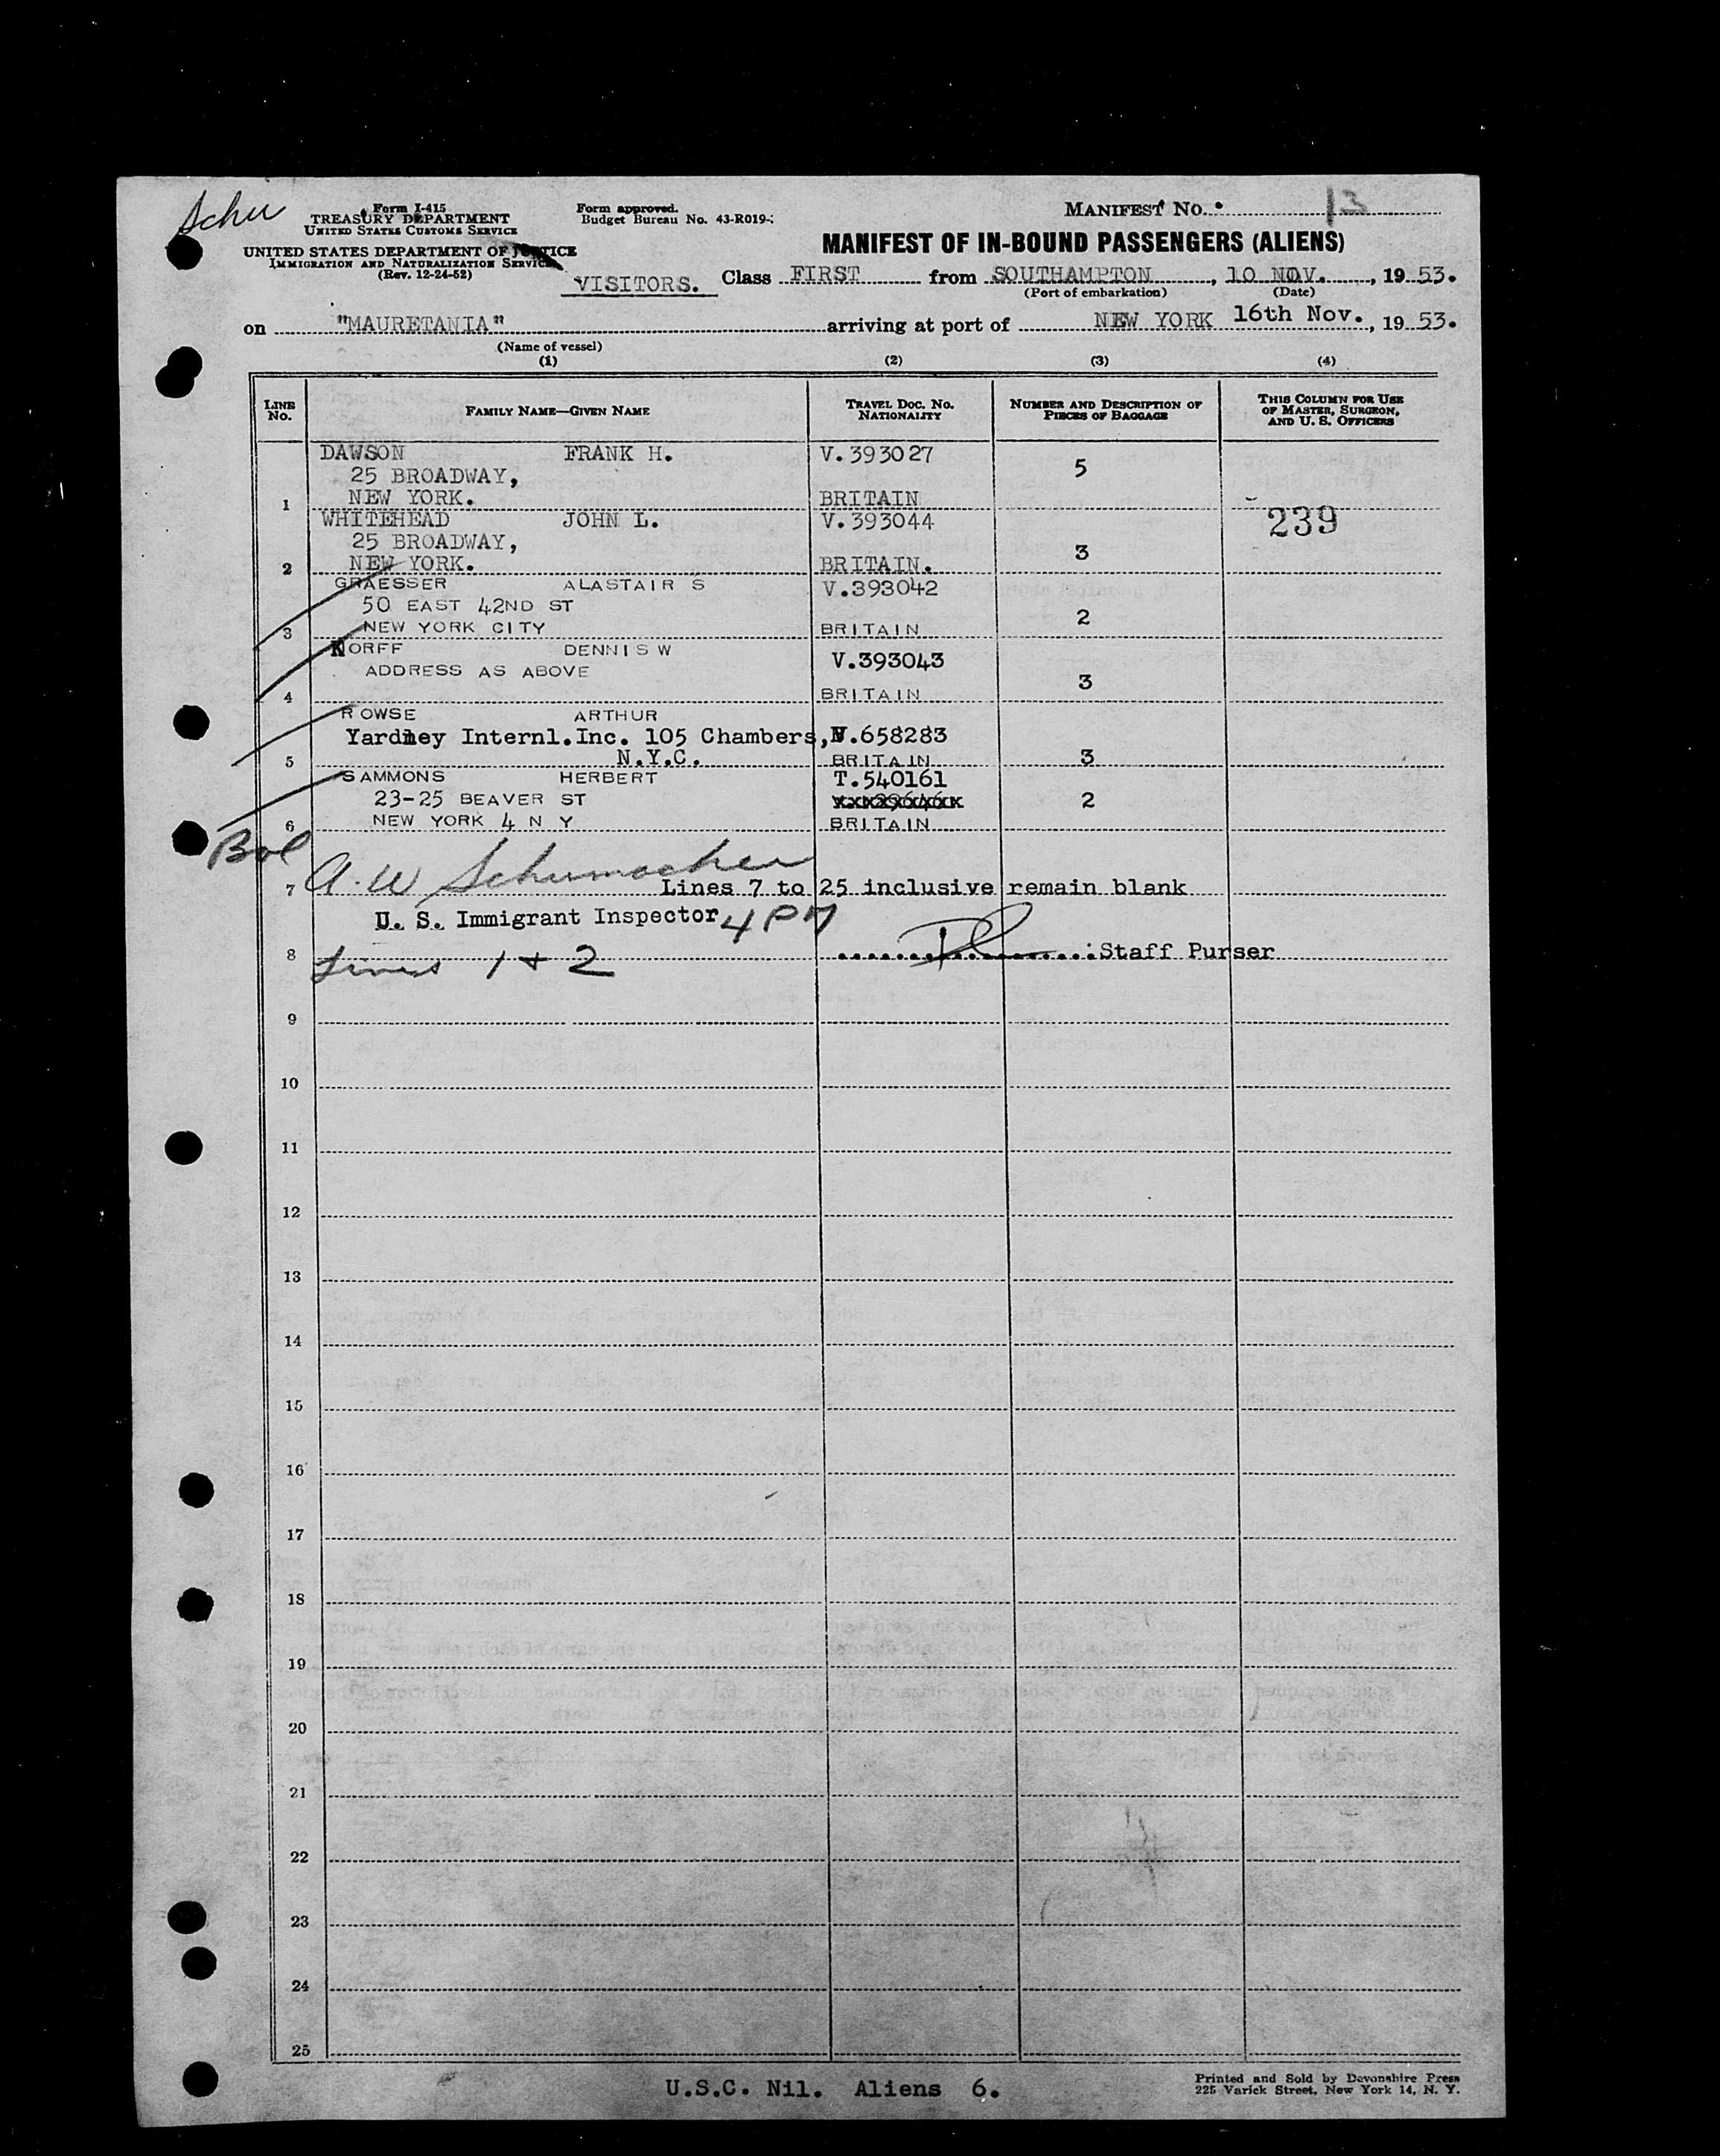 Schu
Form I-415
TREASURY DEPARTMENT
UNITED STATES CUSTOMS SERVICE
UNITED STATES DEPARTMENT OF JUSTICE
IMMIGRATION AND NATURALIZATION SERVICE
(Rev. 12-24-52)
Form approved.
Budget Bureau No. 43-R019-
MANIFEST No. 13
MANIFEST OF IN-BOUND PASSENGERS (ALIENS)
VISITORS. Class FIRST from SOUTHAMPTON, 10 NOV., 1953.
(Port of embarkation) (Date)
on "MAURETANIA" arriving at port of NEW YORK 16th Nov., 1953.
(Name of vessel)
(1) (2) (3) (4)
LINE No. FAMILY NAME—GIVEN NAME TRAVEL DOC. NO. NATIONALITY NUMBER AND DESCRIPTION OF PIECES OF BAGGAGE THIS COLUMN FOR USE OF MASTER, SURGEON, AND U. S. OFFICERS
DAWSON FRANK H. V.393027
25 BROADWAY, 5
1 NEW YORK. BRITAIN
WHITEHEAD JOHN L. V.393044 239
25 BROADWAY, 3
2 NEW YORK. BRITAIN.
GRAESSER ALASTAIR S V.393042
50 EAST 42ND ST 2
3 NEW YORK CITY BRITAIN
KORFF DENNIS W V.393043
ADDRESS AS ABOVE 3
4 BRITAIN
ROWSE ARTHUR
Yardley Internl.Inc. 105 Chambers, V.658283
5 N.Y.C. BRITAIN 3
SAMMONS HERBERT T.540161
23-25 BEAVER ST 2
6 NEW YORK 4 N Y BRITAIN
A. W Schumacher
7 Lines 7 to 25 inclusive remain blank
U. S. Immigrant Inspector 4 PM
8 Lines 1 + 2 Staff Purser
9
10
11
12
13
14
15
16
17
18
19
20
21
22
23
24
25
U.S.C. Nil. Aliens 6.
Printed and Sold by Devonshire Press
225 Varick Street, New York 14, N. Y.